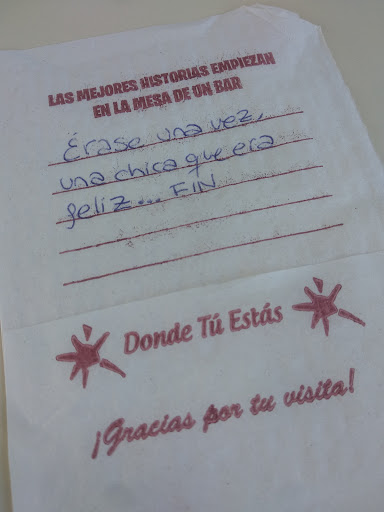 LAS MEJORES HISTORIAS EMPIEZAN
EN LA MESA DE UN BAR
Érase una vez,
una chica que era
feliz... FIN
Donde Tú Estás
¡Gracias por tu visita!